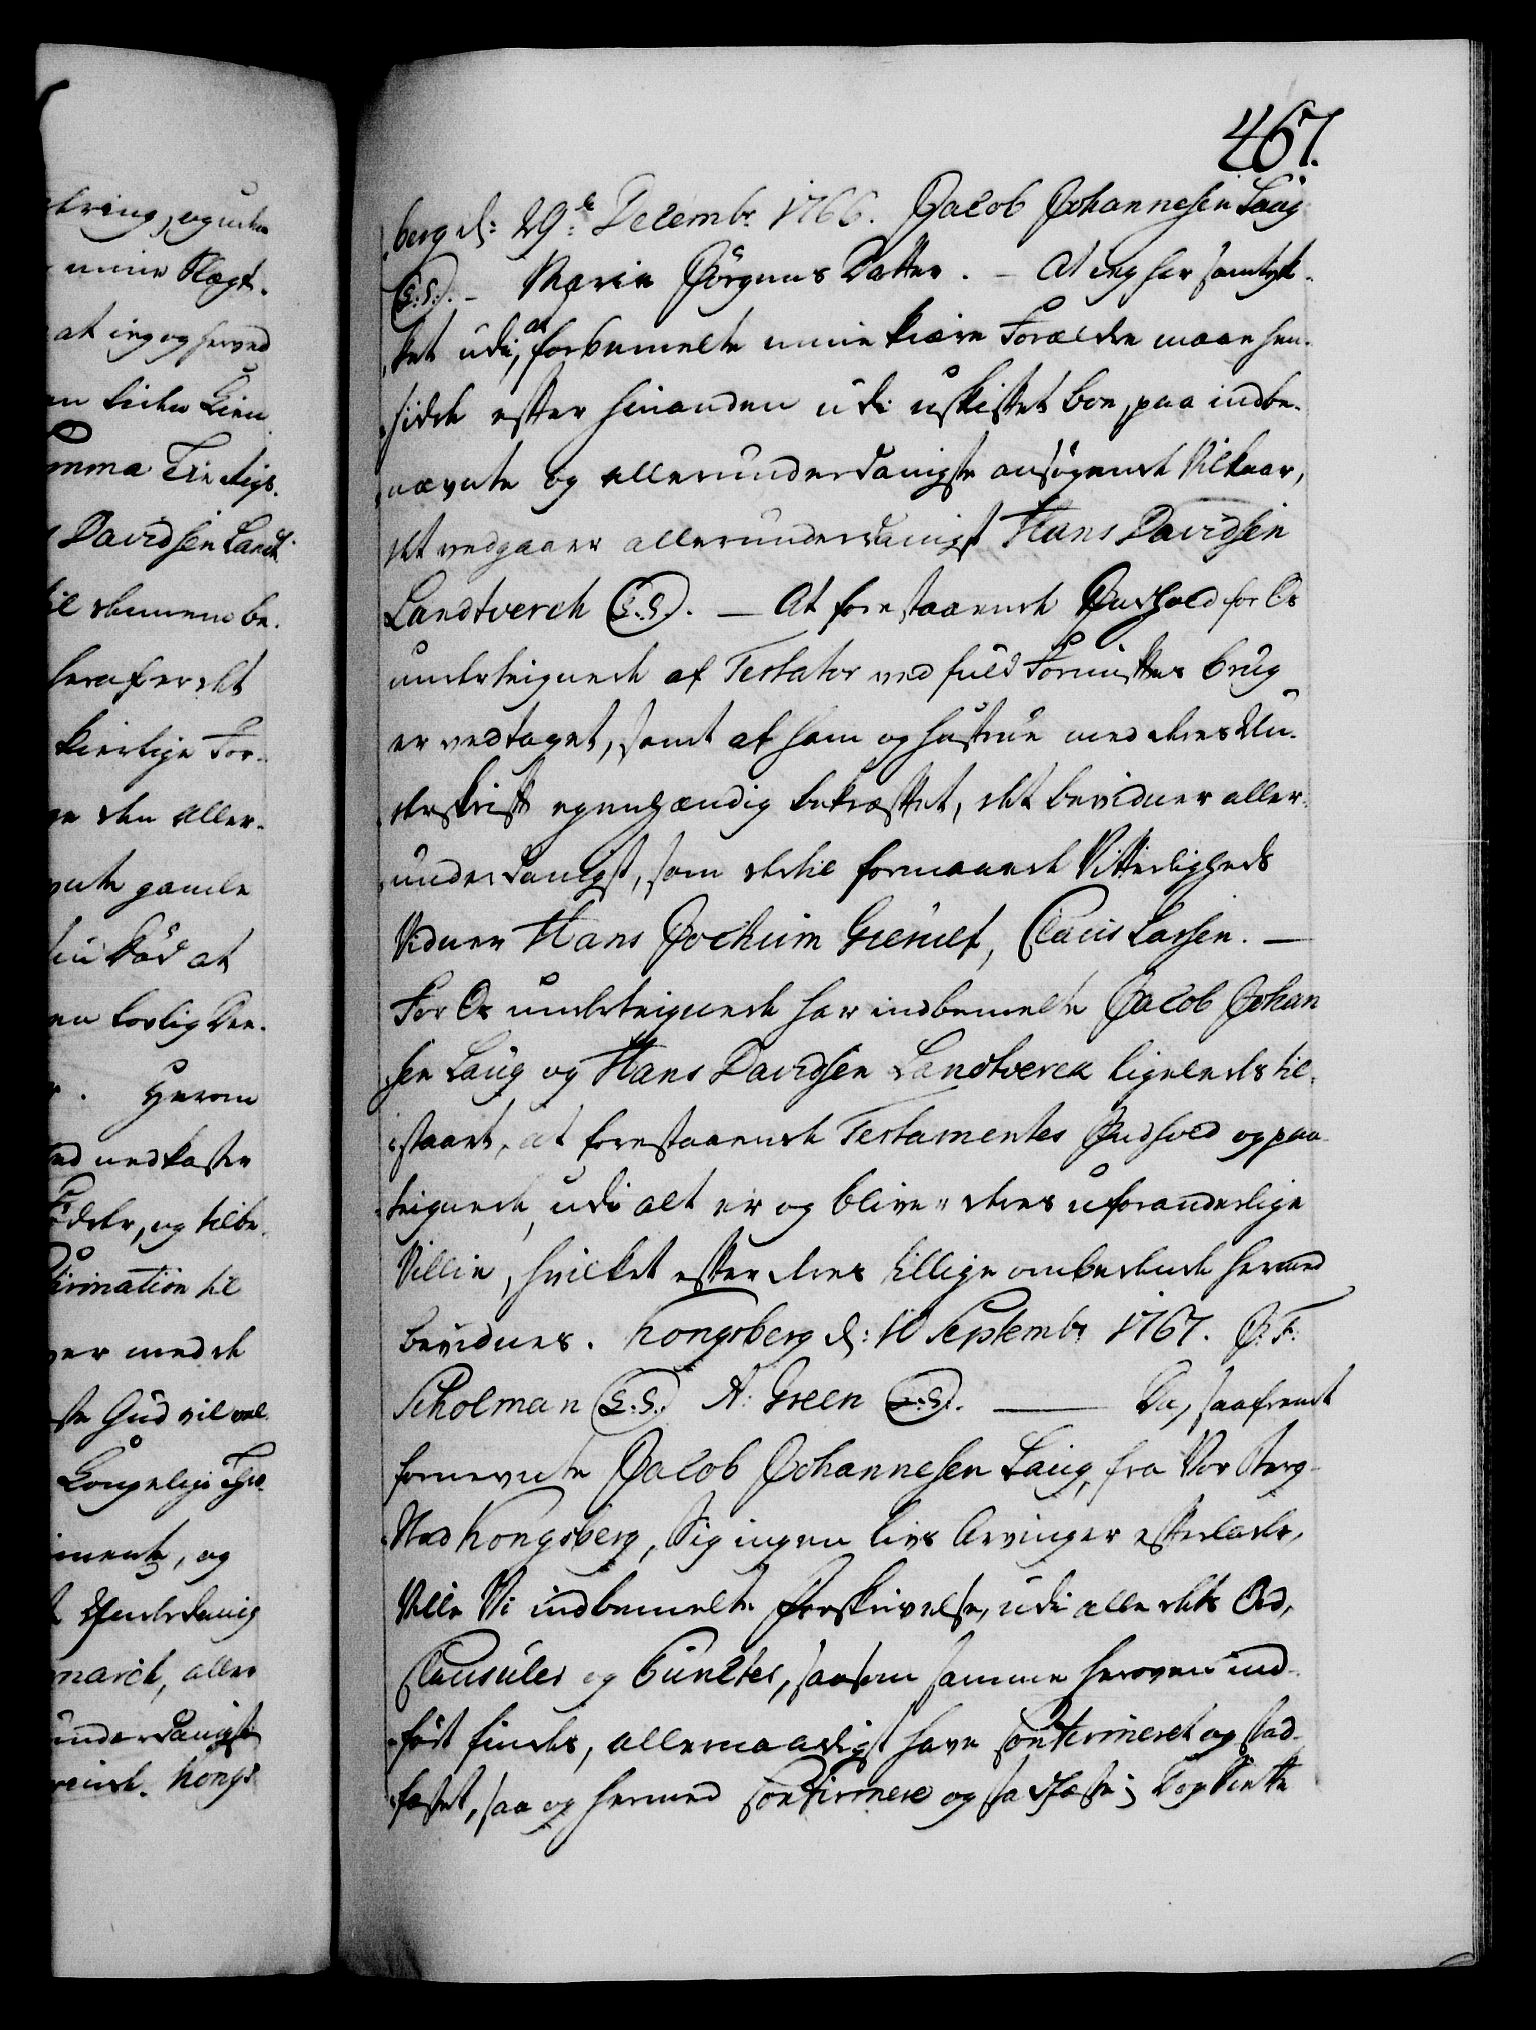 467.
berg d: 29de Decembr. 1766. Jacob Johannesen Laug
(L.S.). - Maria Jörgens Datter. - At jeg har samtyk-
ket udi, at forbemelte mine kiære Forældre maae hen-
sidde efter hinanden udi uskiftet Boe, paa indbe-
nævnte og allerunderdanigste ansøgende Vilkaar,
det vedgaaer allerunderdanigst Hans Davidsen
Landtverch (L.S.). - At forestaaende Indhold for Os
undertegnede af Testator ved fuld Fornuftes brug
er vedtaget, samt af ham og hustrue med deres Un-
derskrift egenhændig bekræftet, det bevidner aller-
underdanigst, som dertil formaaede Vitterligheds
Vidner Hans Jochim, Claus Larsen. -
For Os undertegnede har indbemelte Jacob Johan
sen Laug og Hans Davidsen Landtverck ligeledes til-
staaet, at forestaaende Testamentes Indhold og paa-
tegnede, udi alt er og bliver deres uforanderlige
Villie, hvilket efter deres tillige ombedende herved
bevidnes. Kongsberg d: 10 Septembr 1767. J: F:
Scholman (L.S.) A: Green (L.S.). - Da, saafremt
fornevnte Jacob Johannesen Laug, fra Vor Berg-
Stad Kongsberg, Sig ingen livs Arvinger efterlader,
Ville Vi indbemelte Forskrivelse, udi alle dets Ord,
Clausuler og Puncter, saasom samme heroven ind-
ført findes, allernaadigst have Confirmeret og stad-
fæstet, saa og hermed Confirmere og stadfæste; Dog
at jeg og herved
Davidsen Landt-
til denne be-
heraf er det
kierlige For-
den Aller-
gamle
død at
Herom
og tilbe-
til
med
Gud vil
og
aller
underdanigste
Kongs-